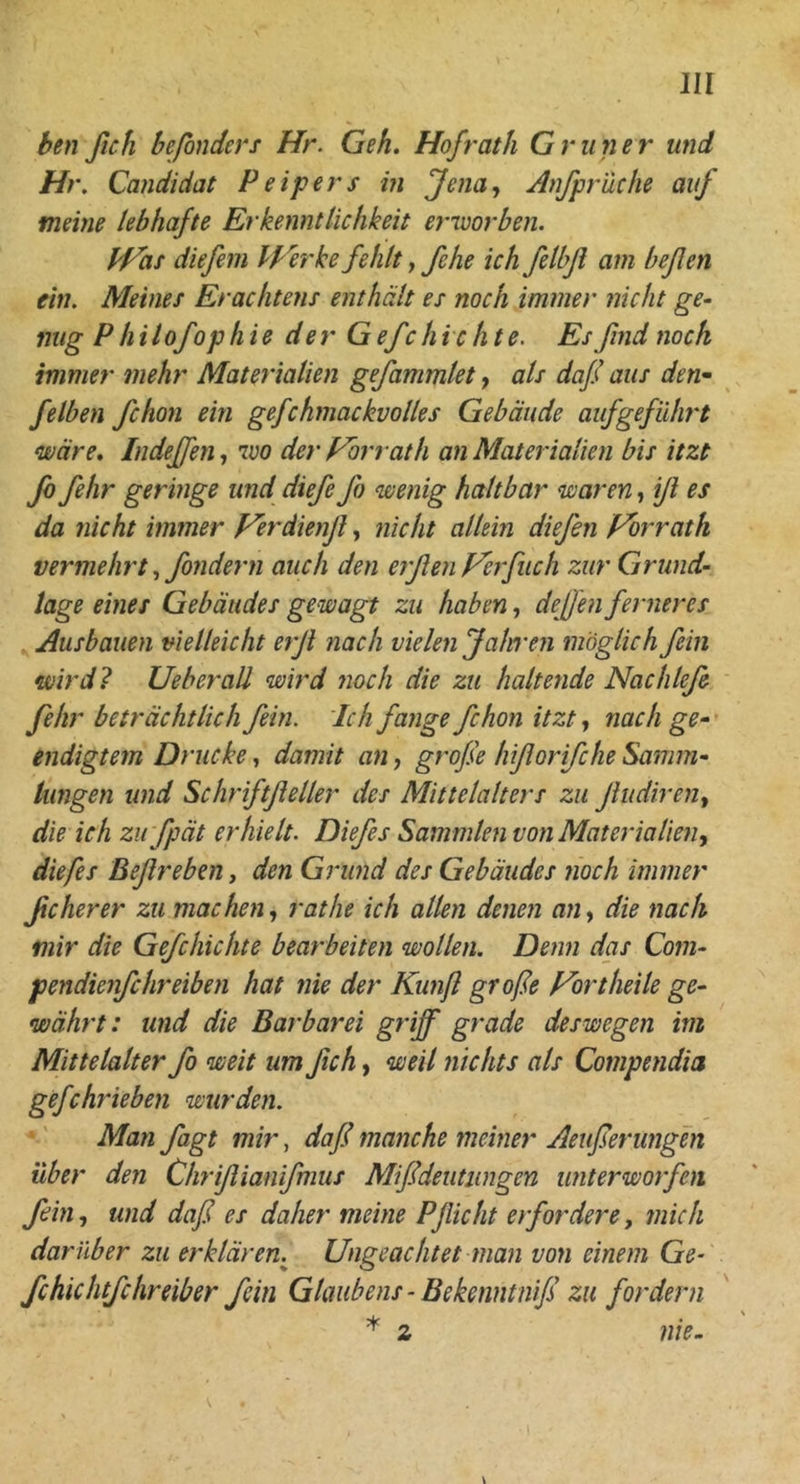 III
ben ſich beſonders Hr. Geh. Hofrath Gruner und
Hr. Candidat Peipers in Jena, Anſprüche auf
meine lebhafte Erkenntlichkeit erworben.
Was dieſem Werke fehlt, ſehe ich ſelbſt am beſten
ein. Meines Erachtens enthält es noch immer nicht ge-
nug Philoſophie der Geſchichte. Es ſind noch
immer mehr Materialien geſammlet, als daß aus den-
ſelben ſchon ein geſchmackvolles Gebäude aufgeführt
wäre. Indeſſen, wo der Vorrath an Materialien bis itzt
ſo ſehr geringe und dieſe ſo wenig haltbar waren, iſt es
da nicht immer Verdienſt, nicht allein dieſen Vorrath
vermehrt, ſondern auch den erſten Verſuch zur Grund-
lage eines Gebäudes gewagt zu haben, deſſen ferneres
Ausbauen vielleicht erſt nach vielen Jahren möglich ſein
wird? Ueberall wird noch die zu haltende Nachleſe
ſehr beträchtlich ſein. Ich fange ſchon itzt, nach ge-
endigtem Drucke, damit an, große hiſtoriſche Samm-
lungen und Schriftſteller des Mittelalters zu ſtudiren,
die ich zu ſpät erhielt. Dieſes Sammlen von Materialien,
dieſes Beſtreben, den Grund des Gebäudes noch immer
ſicherer zu machen, rathe ich allen denen an, die nach
mir die Geſchichte bearbeiten wollen. Denn das Com-
pendienſchreiben hat nie der Kunſt große Vortheile ge-
währt: und die Barbarei griff grade deswegen im
Mittelalter ſo weit um ſich, weil nichts als Compendia
geſchrieben wurden.
Man ſagt mir, daß manche meiner Aeußerungen
über den Chriſtianiſmus Mißdeutungen unterworfen
ſein, und daß es daher meine Pflicht erfordere, mich
darüber zu erklären. Ungeachtet man von einem Ge-
ſchichtſchreiber ſein Glaubens-Bekenntniß zu fordern
* 2 nie-